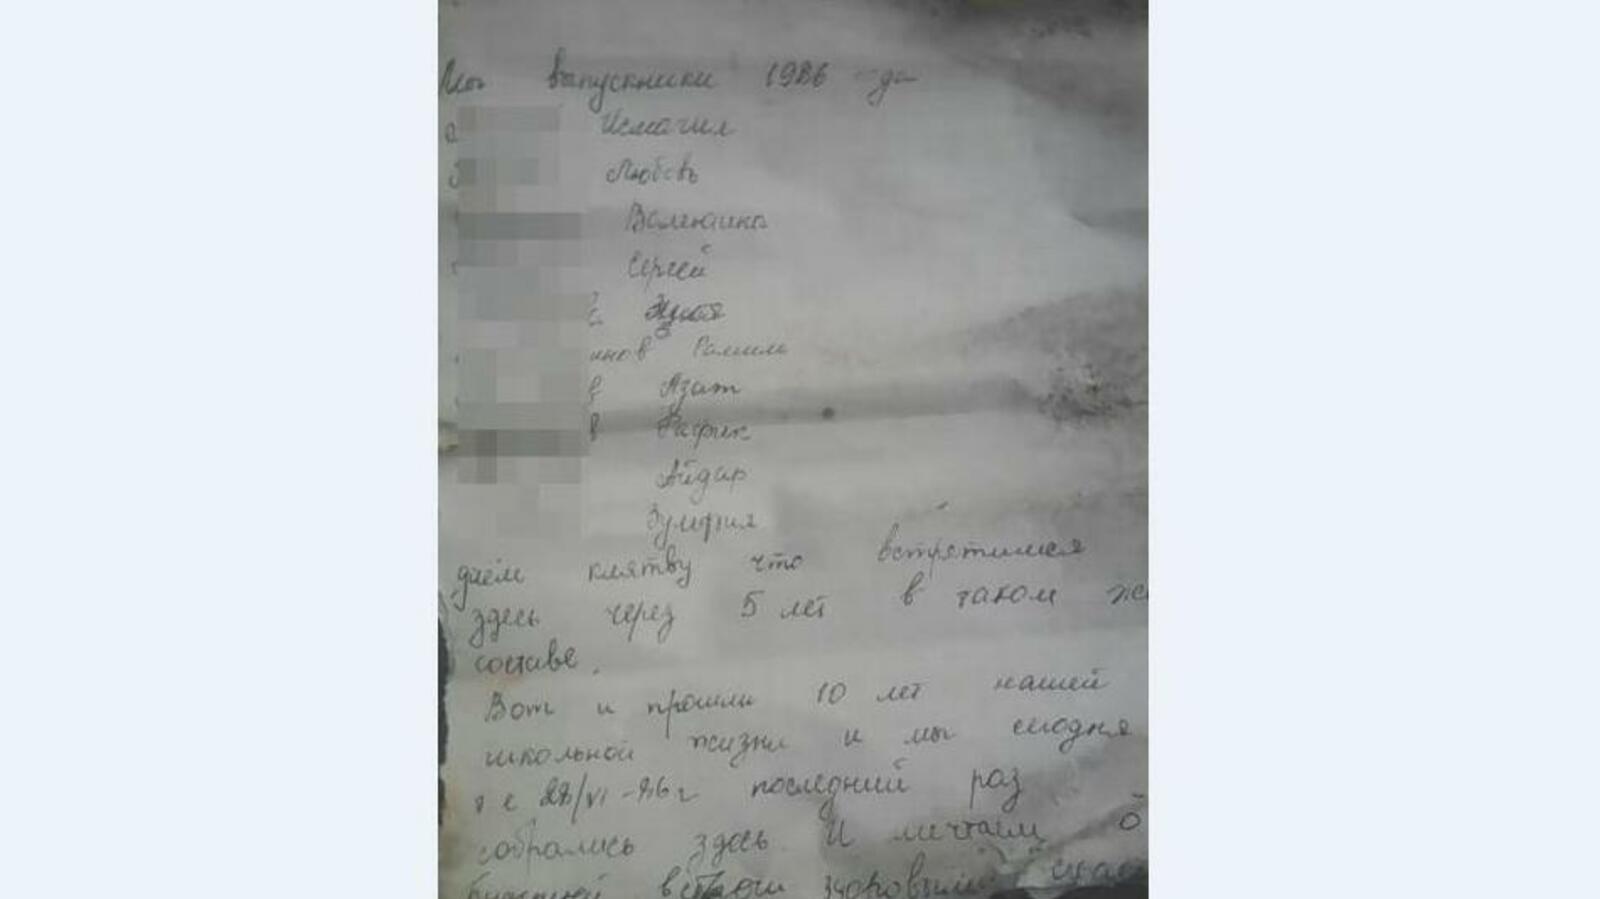 Мы выпускники 1986 года
Исмагил
Любовь
Валентина
Сергей
инов Рамиль
в Азат
в Рафик
Айдар
Зульфия
даём клятву что встретимся
здесь через 5 лет в таком же
составе.
Вот и прошли 10 лет нашей
школьной жизни и мы сегодня
т е 28/VI-86 г последний раз
собрались здесь. И мечтаем о
встречи здоровыми